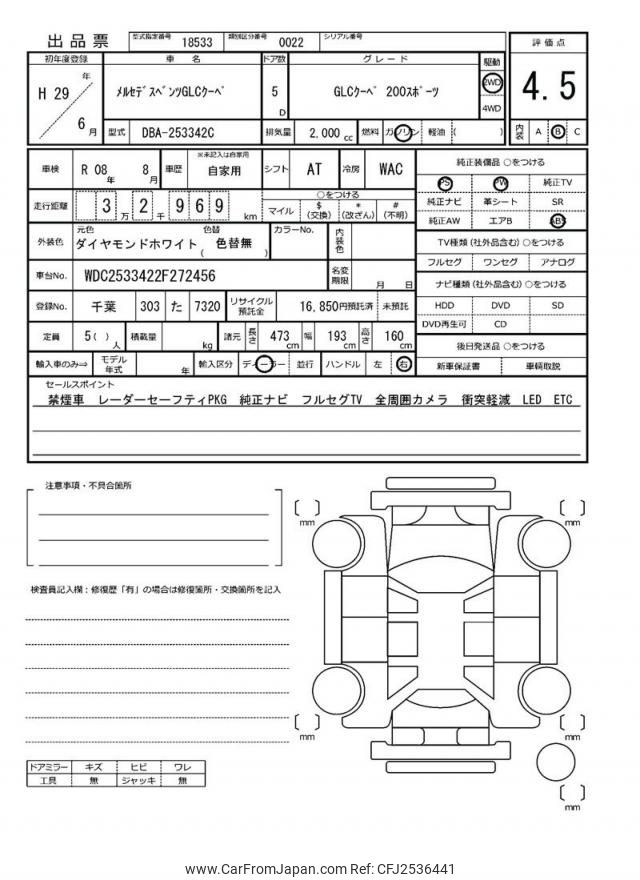 出品票 型式指定番号 18533 類別区分番号 0022 シリアル番号
初年度登録 車 名 ドア数 グレード 駆動 評価点
H 29 年 6 月 メルセデスベンツGLCクーペ 5 D GLCクーペ 200スポーツ 2WD 4WD 4.5
型式 DBA-253342C 排気量 2,000 cc 燃料 ガソリン 軽油 ( ) 内装 A B C
車検 R 08 年 8 月 車歴 ※未記入は自家用 自家用 シフト AT 冷房 WAC 純正装備品 ○をつける
PS PW 純正TV
走行距離 3 万 2 千 9 6 9 km ○をつける
マイル $ (交換) * (改ざん) # (不明)
純正ナビ 革シート SR
純正AW エアB ABS
外装色 元色 ダイヤモンドホワイト 色替 ( 色替無 ) カラーNo. 内装色
TV種類 (社外品含む) ○をつける
フルセグ ワンセグ アナログ
車台No. WDC2533422F272456 名変期限 月 日
ナビ種類 (社外品含む) ○をつける
登録No. 千葉 303 た 7320 リサイクル預託金 16,850円預託済 未預託
HDD DVD SD
DVD再生可 CD
定員 5 ( ) 人 積載量 kg 諸元 長さ 473 cm 幅 193 cm 高さ 160 cm
後日発送品 ○をつける
輸入車のみ⇒ モデル年式 年 輸入区分 ディーラー 並行 ハンドル 左 右
新車保証書 車輌取説
セールスポイント
禁煙車 レーダーセーフティPKG 純正ナビ フルセグTV 全周囲カメラ 衝突軽減 LED ETC
注意事項・不具合箇所
mm
mm
検査員記入欄：修復歴「有」の場合は修復箇所・交換箇所を記入
mm
mm
ドアミラー キズ ヒビ ワレ
工具 無 ジャッキ 無
mm
www.CarFromJapan.com Ref: CFJ2536441